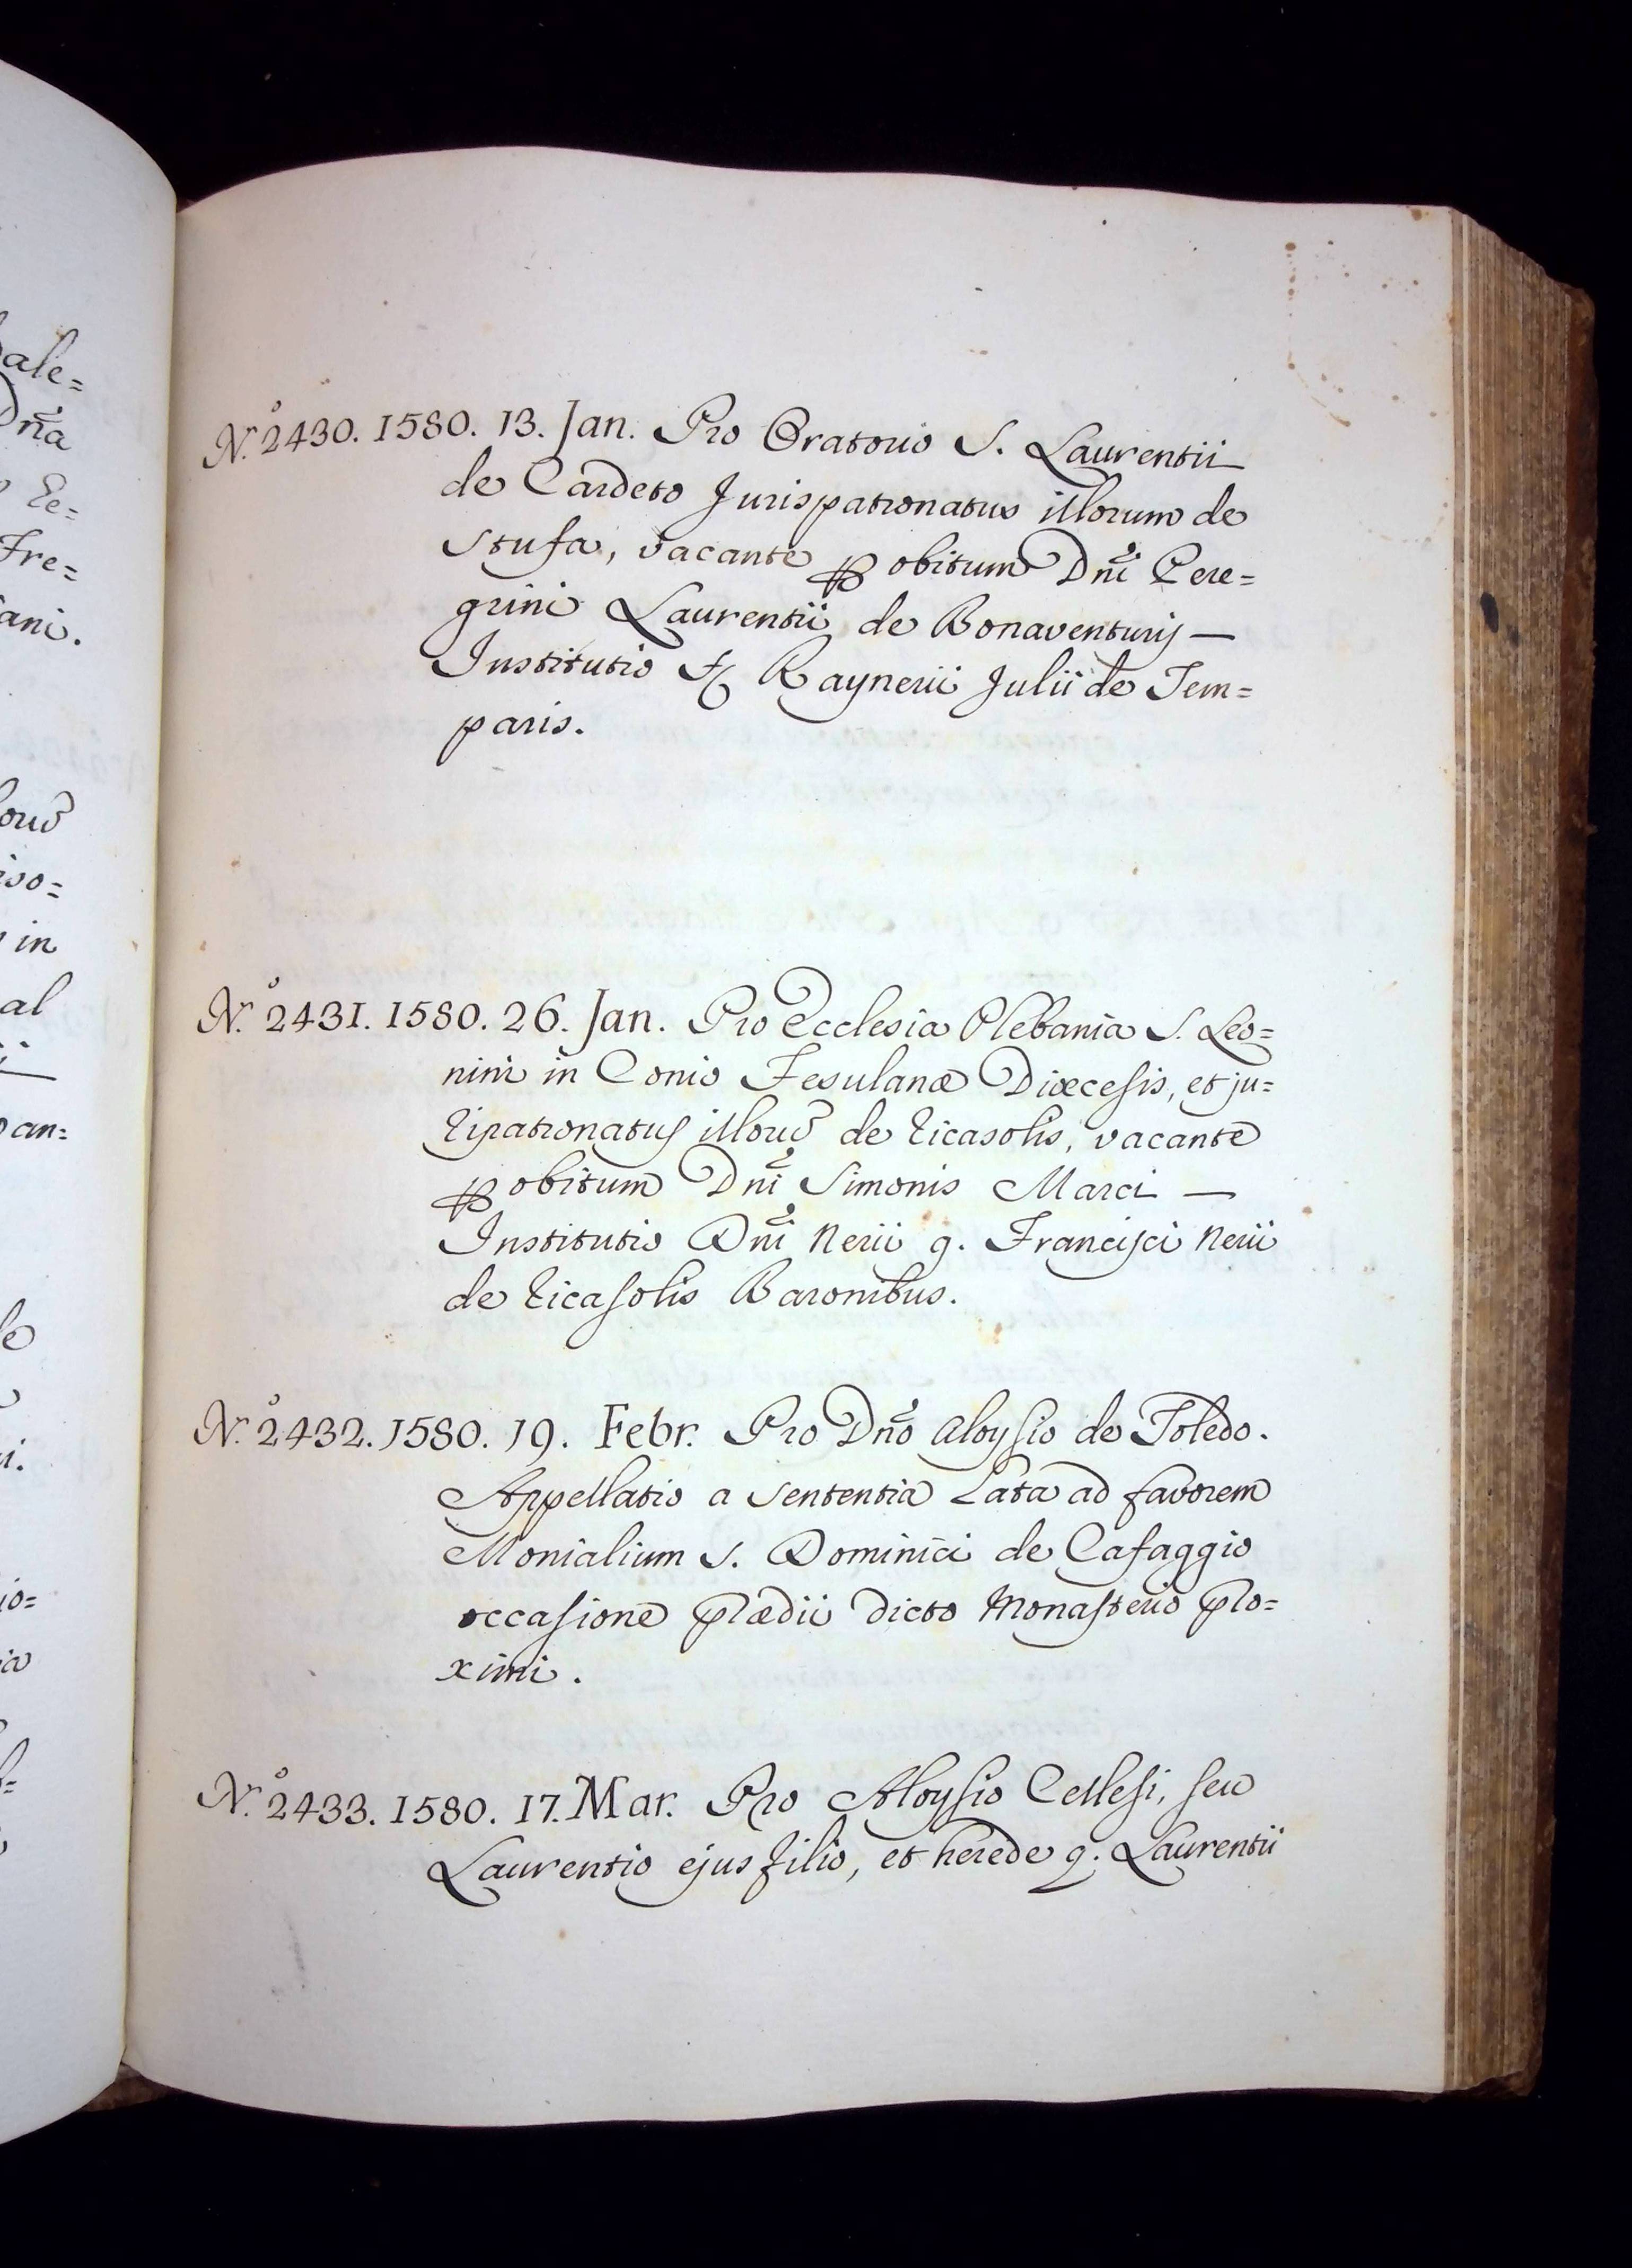 ale=
Dña
Ee=
Fre=
ani.
iso=
in
al
an=
io=
N.º 2430. 1580. 13. Jan. Pro Oratorio S. Laurentii
de Cardeto Jurispatronatus illorum de
Stufa, vacante ꝑ obitum Dñi Pere=
grini Laurentii de Bonaventurij —
Institutio Raynerii Julii de Tem=
paris.
N.º 2431. 1580. 26. Jan. Pro Ecclesia Plebania S. Leo=
nini in Conio Fesulanæ Diœcesis, et ju=
rispatronatus illorũ de Ricasolis, vacante
ꝑ obitum Dñi Simonis Marci —
Institutio Dñi Nerii q. Francisci Nerii
de Ricasolis Baronibus.
N.º 2432. 1580. 19. Febr. Pro Dño Aloysio de Toledo.
Appellatio a Sententia Lata ad favorem
Monialium S. Dominici de Cafaggio
occasione prædii dicto Monasterio pro=
ximi.
N.º 2433. 1580. 17. Mar. Pro Aloysio Cellesi, seu
Laurentio ejus filio, et herede q. Laurentii